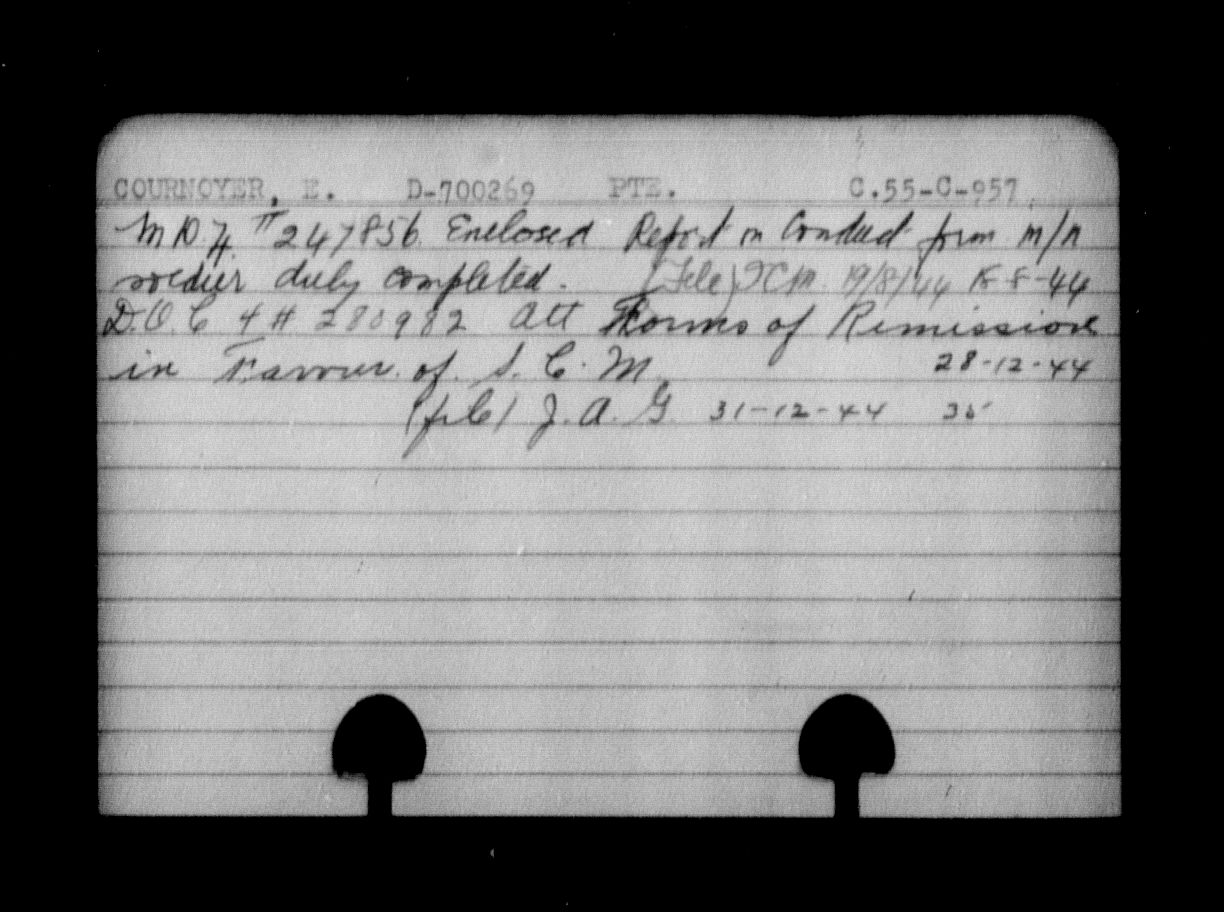 COURNOYER, E. D-700269 PTE. C.55-C-957
M.D.4 # 247856. Enclosed Report on Conduct form M/N
soldier duly completed. (File) 19/8/44 18-8-44
D.O.C 4 # 280982 Att Forms of Remission
in Favour of S. C. M. 28-12-44
(file) J. A. G. 31-12-44 35